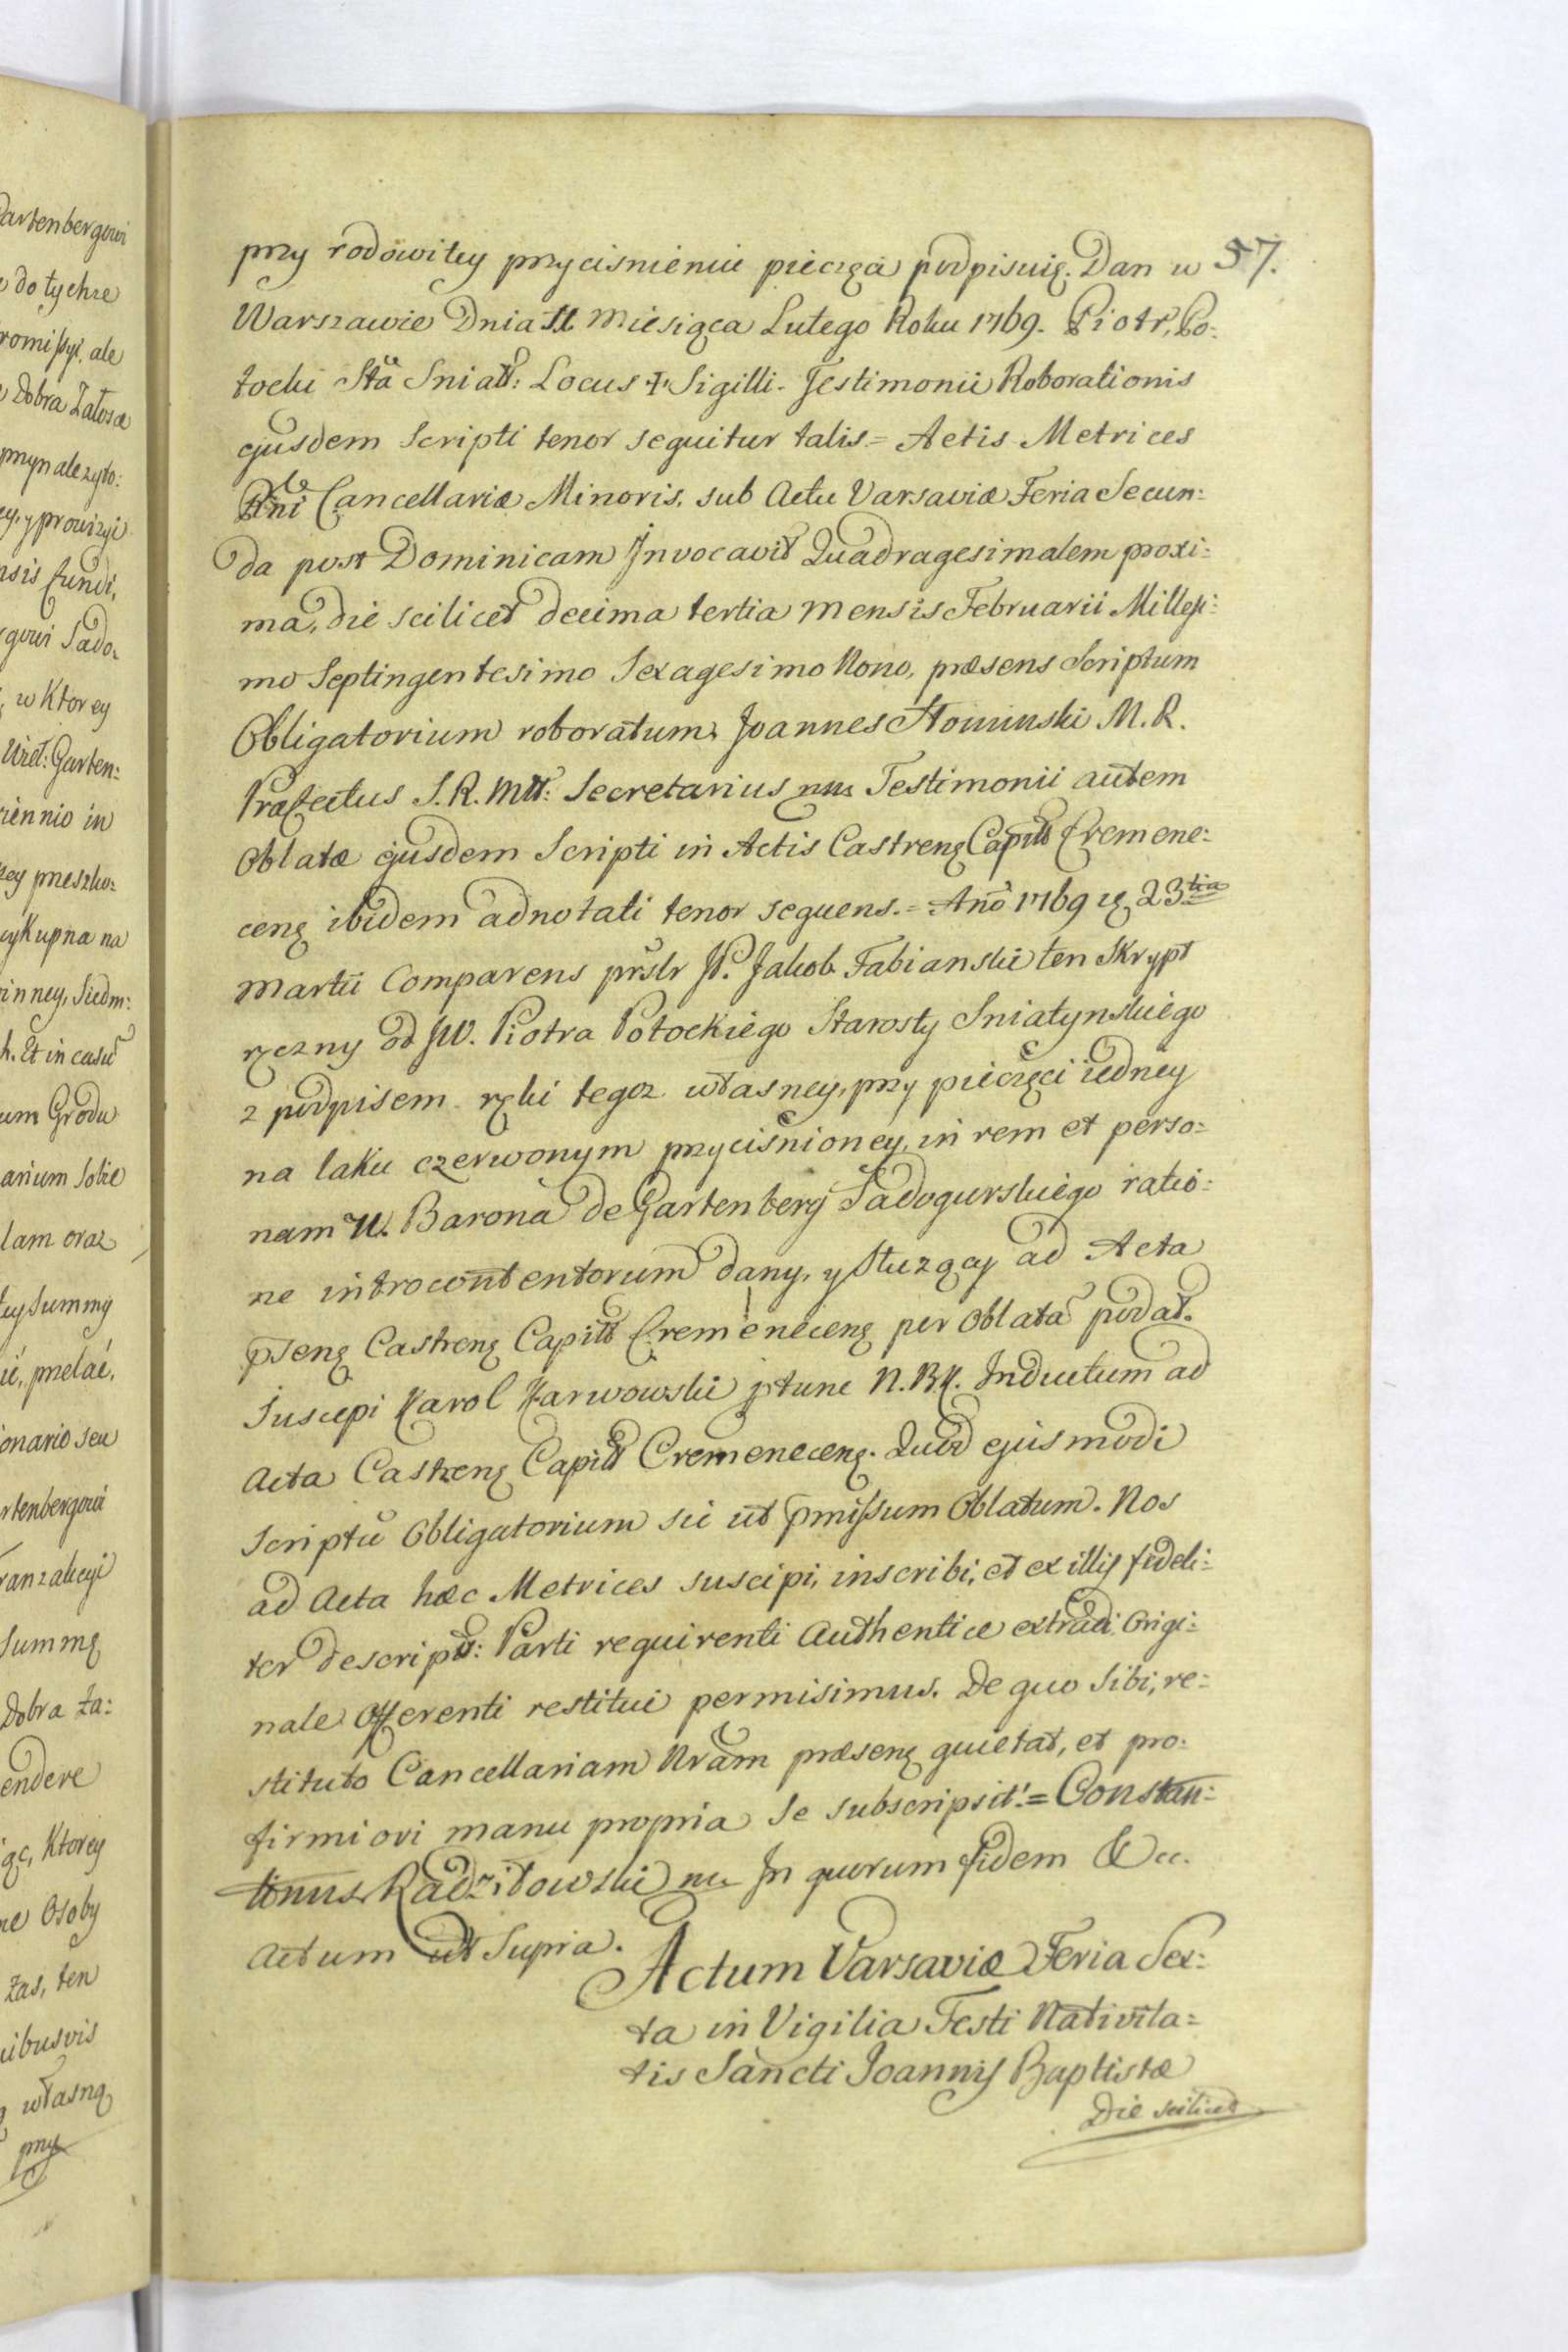 przy rodowitey przycisnieniu pieczęci podpisuię. Dan w 57.
Warszawie Dnia 11 Miesiąca Lutego Roku 1769. Piotr, Po:
tocki Stta Sniatt: Locus + Sigilli. Testimonii Roborationis
ejusdem Scripti tenor sequitur talis = Actis Metrices
Rni Cancellariæ Minoris, sub Actu Varsaviæ Feria Secun:
da post Dominicam Jnvocavit Quadragesimalem proxi:
ma, die scilicet decima tertia mensis Februarii Millesi:
mo Septingentesimo Sexagesimo Nono, præsens Scriptum
Obligatorium roboratum, Joannes Słominski M. R.
Præfectus S. R. Mtt: Secretarius mu Testimonii autem
Oblatæ ejusdem Scripti in Actis Castreng Capitt Cremene:
ceng ibidem adnotati tenor sequens. = Anno 1769 23tia
Martii Comparens prslr JP. Jakob Fabianski ten Skrypt
ręczny od JW. Piotra Potockiego Starosty Sniatynskiego
z podpisem ręki tegoz własney, przy pieczęci iedney
na laku czerwonym przycisnioney, in rem et perso:
nam W. Barona de Gartenberg Sadogurskiego ratio:
ne introcontentorum dany, y słuzący ad Acta
pseng Castreng Capitt Cremeneceng per oblata podał.
Suscepi Karol Karwowski N. BK. Inductum ad
Acta Castreng Capitt Cremeneceng. Quod ejusmodi
Scriptu Obligatorium sic ut pmissum Oblatum. Nos
ad Acta hæc Metrices suscipi, inscribi, et ex illis fideli:
ter descriptt: Parti requirenti Authentice extradi Origi:
nale Offerenti restitui permisimus. De quo Sibi, re:
stituto Cancellariam Nram præseng quietat, et pro
firmiori manu propria Se subscripsit. = Constan:
tinus Radziłowski mu In quorum fidem &cc.
Actum ut Supra.
Actum Varsaviæ Feria Sex:
ta in Vigilia Festi Nativita:
tis Sancti Joannis Baptistæ
Die scilicet